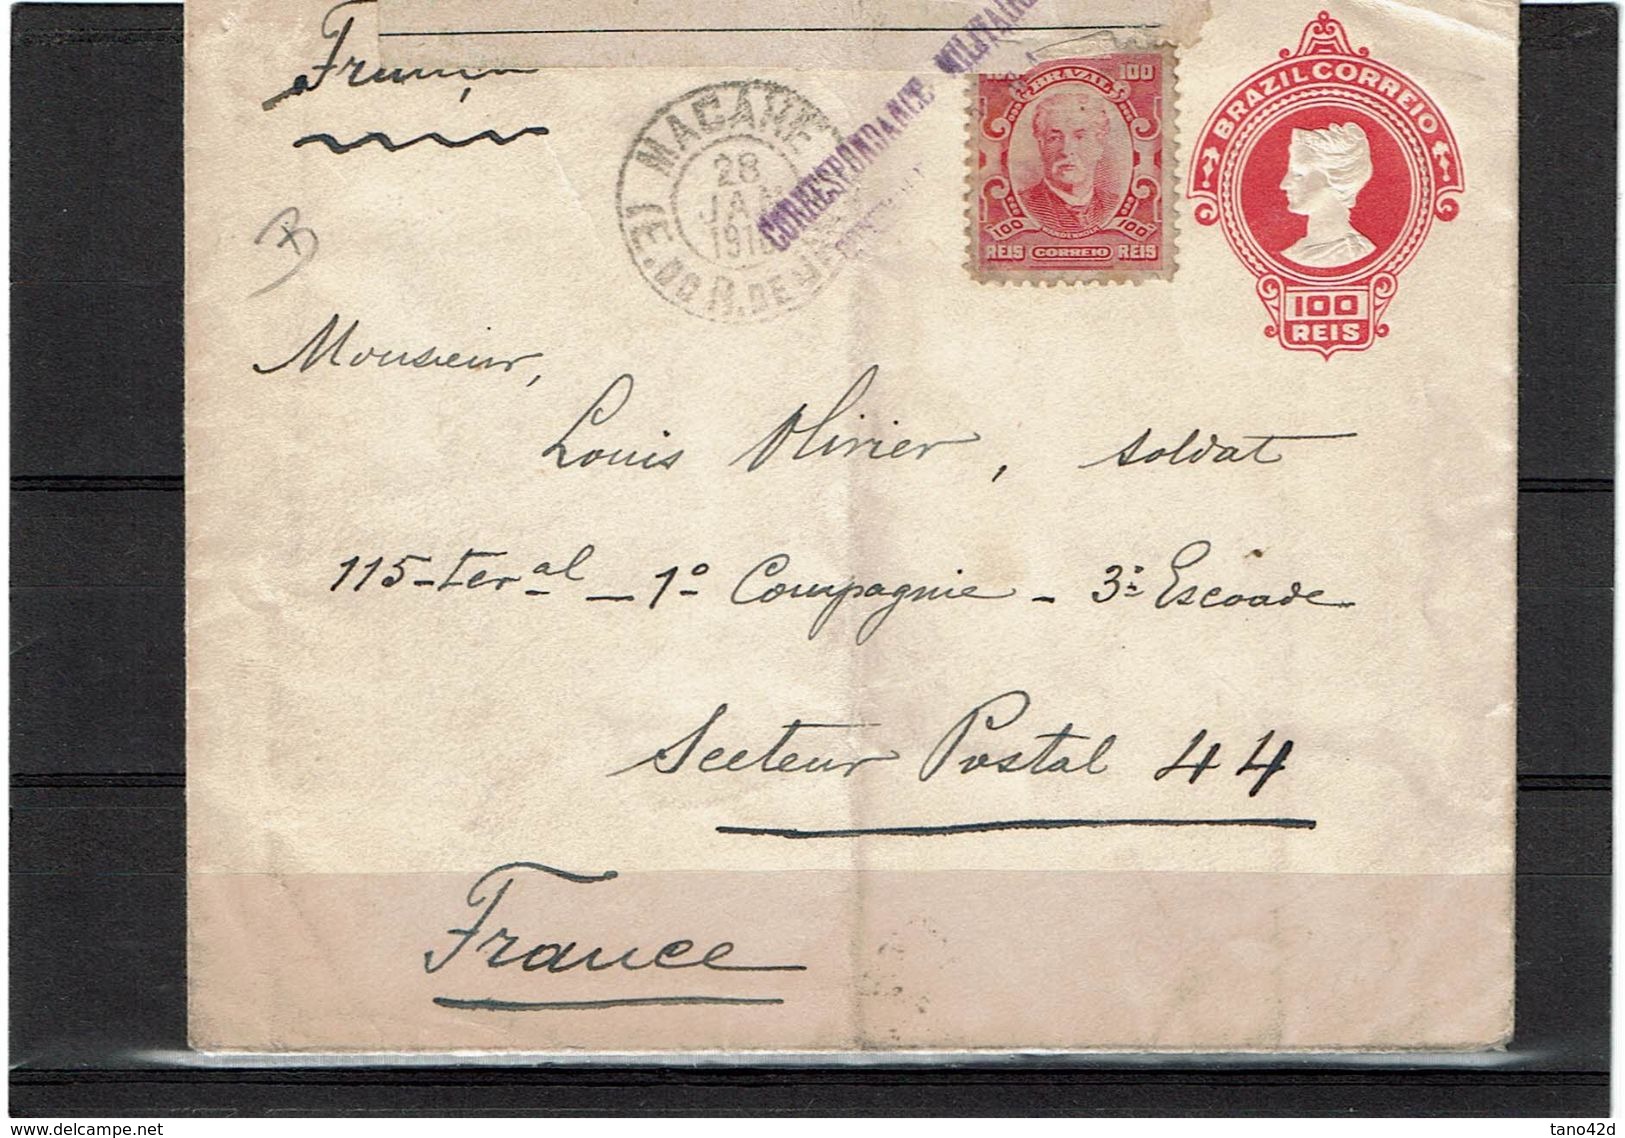 França
CORRESPONDANCE MILITAIRE
MACAHE
28
JAN
(E. DO R. DE
100 BRAZIL 100
100 100
REIS CORREIO REIS
BRAZIL CORREIO
100
REIS
Monsieur,
Louis Olivier, soldat
115-ter^al - 1° Compagnie - 3e Escoade
Secteur Postal 44
France
www.delcampe.net
tano42d